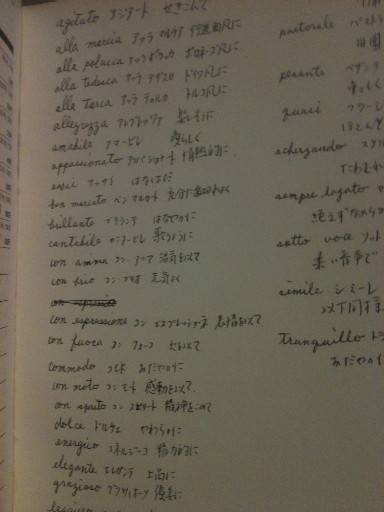 agitato アジタート せきこんで
alla marcia アラ マルチア 行進曲風に
alla polacca アッラ ポラッカ ポロネーズ風に
alla tedesca アッラ テデスカ ドイツ風に
alla turca アッラ トゥルカ トルコ風に
allegrezza アレグレッツァ 楽しそうに
amabile アマービレ 愛らしく
appassionato アパショナート 情熱的に
assai アッサイ はなはだ
ben marcato ベン マルカート 充分に
brillante ブリランテ はなやかに
cantabile カンタービレ 歌うように
con anima コン アニマ 活気を以て
con brio コン ブリオ 元気よく
con espressione コン エスプレッシオーネ 表情を以て
con fuoco コン フォーコ 火を以て
commodo コモド おだやかに
con moto コン モート 感動を以て
con spirito コン スピリート 精神をこめて
dolce ドルチェ やわらかに
energico エネルジーコ 精力的に
elegante エレガンテ 上品に
grazioso グラツィオーソ 優美に
pastorale
田園
pesante ペザンテ
重々しく
quasi クワージ
ほとんど
scherzando スケル
たわむれ
sempre legato
絶えずなめらか
sotto voce ソット
柔い音声で
simile シミーレ
以下同様
tranquillo トラ
おだやか